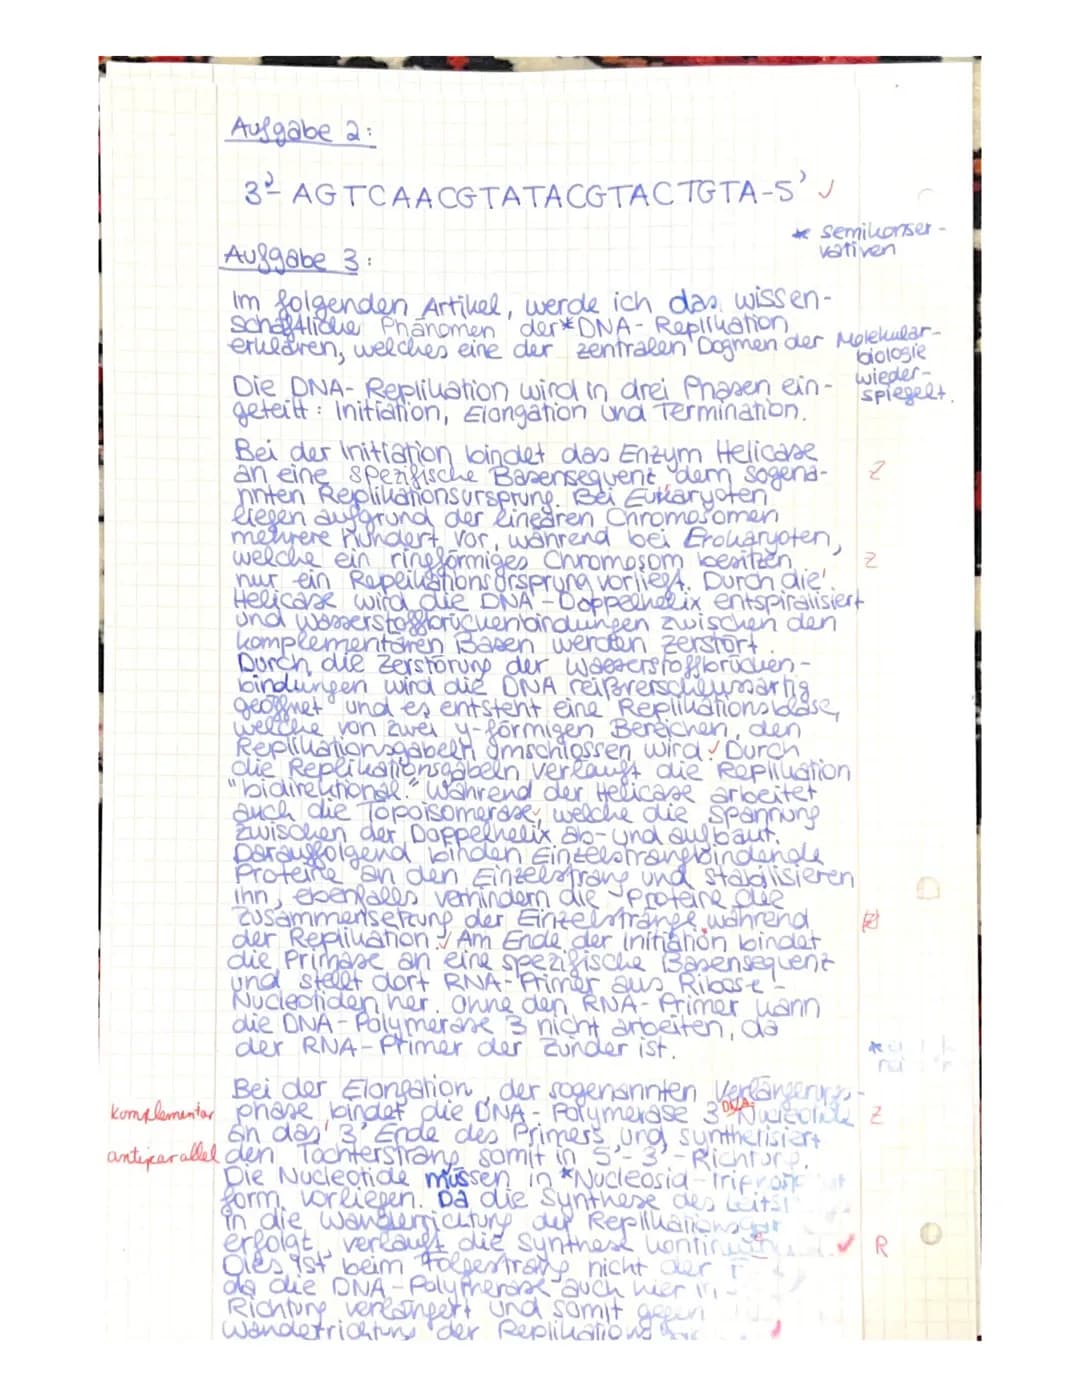 Aufgabe 2:
3'- AGTCAACGTATACGTACTGTA-5' ✓
* semikonser-
vativen
Aufgabe 3:
Im folgenden Artikel, werde ich das wissen-
schaftliche Phänomen der * DNA-Replikation
erklären, welches eine der zentralen Dogmen der Molekular-
biologie
wieder-
spiegelt.
Die DNA-Replikation wird in drei Phasen ein-
geteilt: Initiation, Elongation und Termination.
Bei der Initiation bindet das Enzym Helicase
an eine spezifische Basensequenz, dem sogena- Z
nnten Replikationsursprung. Bei Eukaryoten
liegen aufgrund der linearen Chromosomen
mehrere Hundert vor, während bei Prokaryoten,
welche ein ringförmiges Chromosom besitzen, Z
nur ein Replikationsursprung vorliegt. Durch die
Helicase wird die DNA-Doppelhelix entspiralisiert
und Wasserstoffbrückenbindungen zwischen den
komplementären Basen werden zerstört.
Durch die Zerstörung der Wasserstoffbrücken-
bindungen wird die DNA reißverschlussartig
geöffnet und es entsteht eine Replikationsblase,
welche von zwei y-förmigen Bereichen, den
Replikationsgabeln umschlossen wird. ✓ Durch
die Replikationsgabeln verläuft die Replikation
"bidirektional." Während der Helicase arbeitet
auch die Topoisomerase, welche die Spannung
zwischen der Doppelhelix ab- und aufbaut.
Darauffolgend binden Einzelstrangbindende
Proteine an den Einzelstrang und stabilisieren
ihn, ebenfalls verhindern die Proteine die
Zusammensetzung der Einzelstränge während
der Replikation. ✓ Am Ende der Initiation bindet
die Primase an eine spezifische Basensequenz
und stellt dort RNA-Primer aus Ribose-
Nucleotiden her. Ohne den RNA-Primer kann
die DNA-Polymerase 3 nicht arbeiten, da
der RNA-Primer der Zünder ist.
Bei der Elongation, der sogenannten Verlängerungs-
komplementär phase bindet die DNA-Polymerase 3 DNA- Nucleotide Z
an das 3' Ende des Primers und synthetisiert
antiparallel den Tochterstrang somit in 5'-3'-Richtung.
Die Nucleotide müssen in * Nucleosid-Triphosphat
form vorliegen. Da die Synthese des Leitst
in die Wanderrichtung der Replikationsgab
erfolgt, verläuft die Synthese kontinuierl ✓ R
Dies ist beim Folgestrang nicht der F
da die DNA-Polymerase auch hier in
Richtung verlängert und somit gegen
Wanderrichtung der Replikations